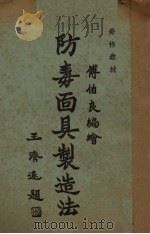 勞作教材
傅伯良編繪
防毒面具製造法
王濟遠題